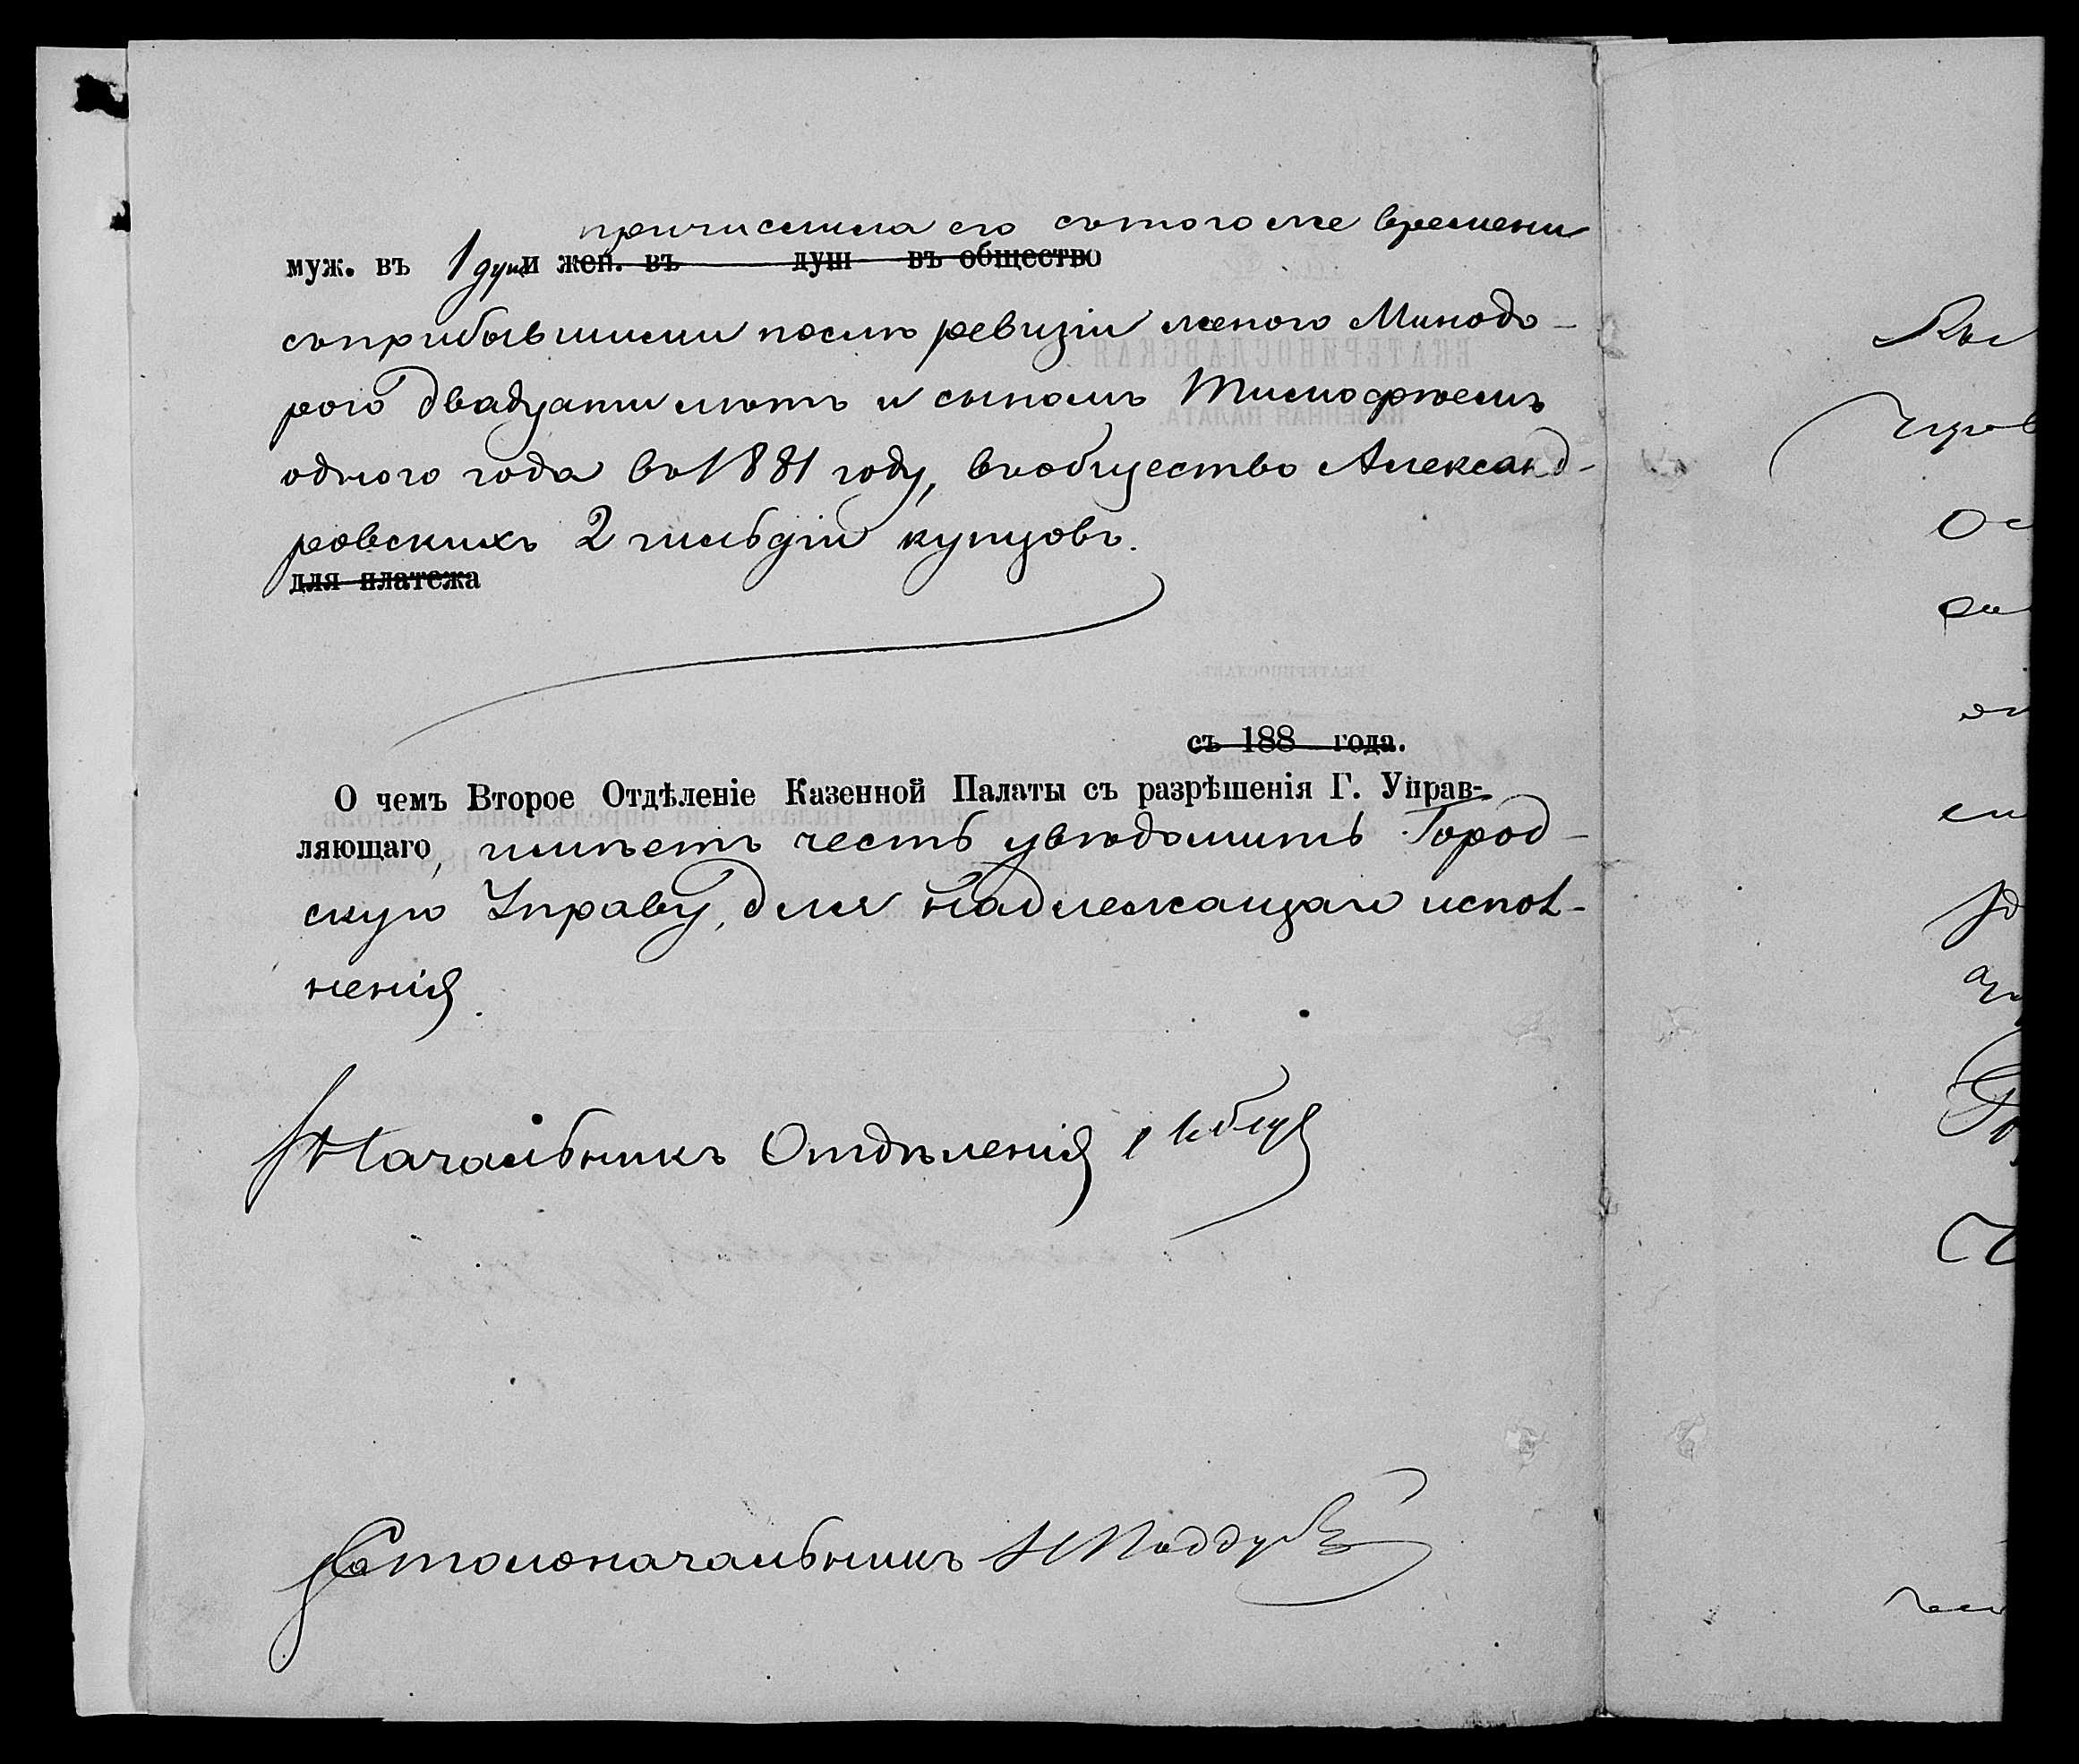 причислила его съ того же времени
муж. въ 1 душ и жен. въ душ въ общество
съ прибывшими после ревизіи женою Минодо-
рою двадцати лѣтъ и сыномъ Тимофѣемъ
одного года въ 1881 году, въ общество Александ-
ровскихъ 2 гильдіи купцовъ.
для платежа
съ 188 года.
О чемъ Второе Отдѣленіе Казенной Палаты съ разрѣшенія Г. Управ-
ляющаго, имѣетъ честь увѣдомить Город-
скую Управу, для надлежащаго испол-
ненія.
Начальникъ Отдѣленія
Столоначальникъ